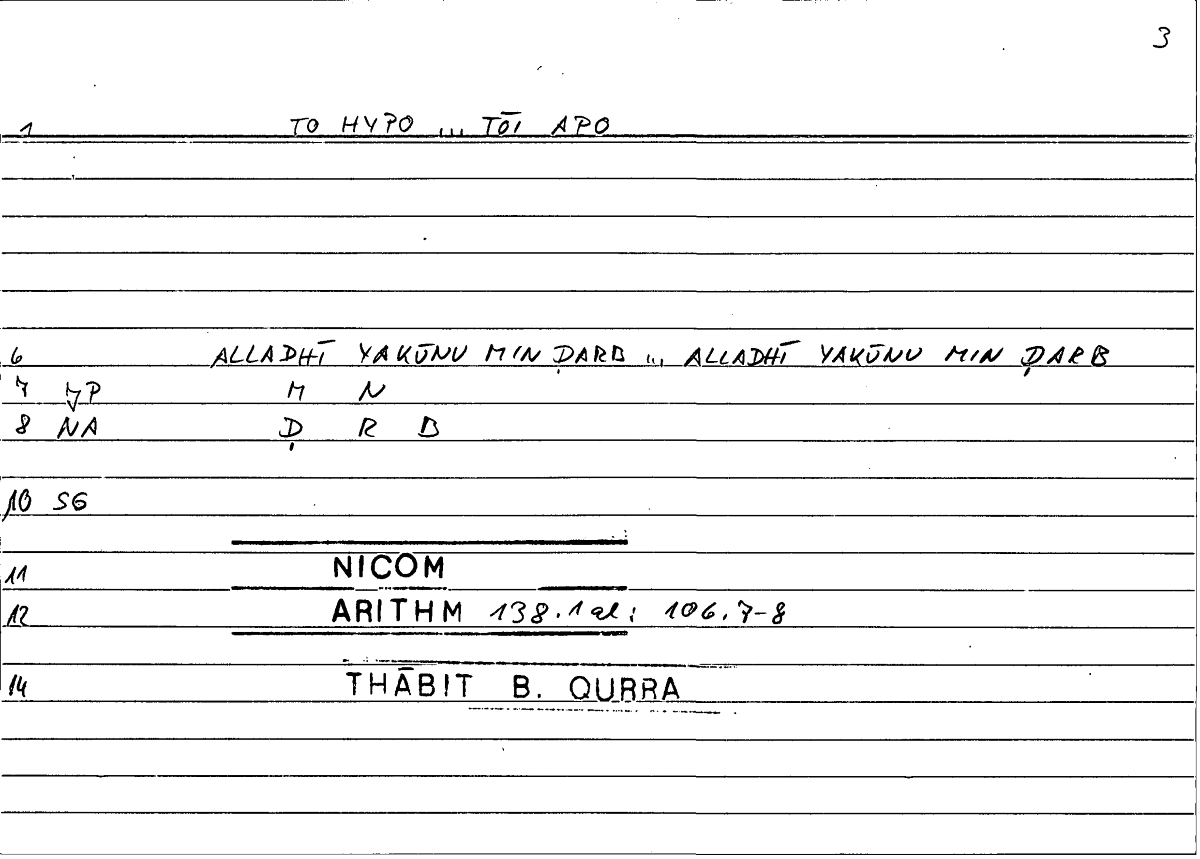 3
1 TO HYPO ... TŌI APO
6 ALLADHĪ YAKŪNU MIN ḌARB ... ALLADHĪ YAKŪNU MIN ḌARB
7 M N
8 NA Ḍ R B
10 SG
11 NICOM
12 ARITHM 138.1 al: 106.7-8
14 THĀBIT B. QURRA